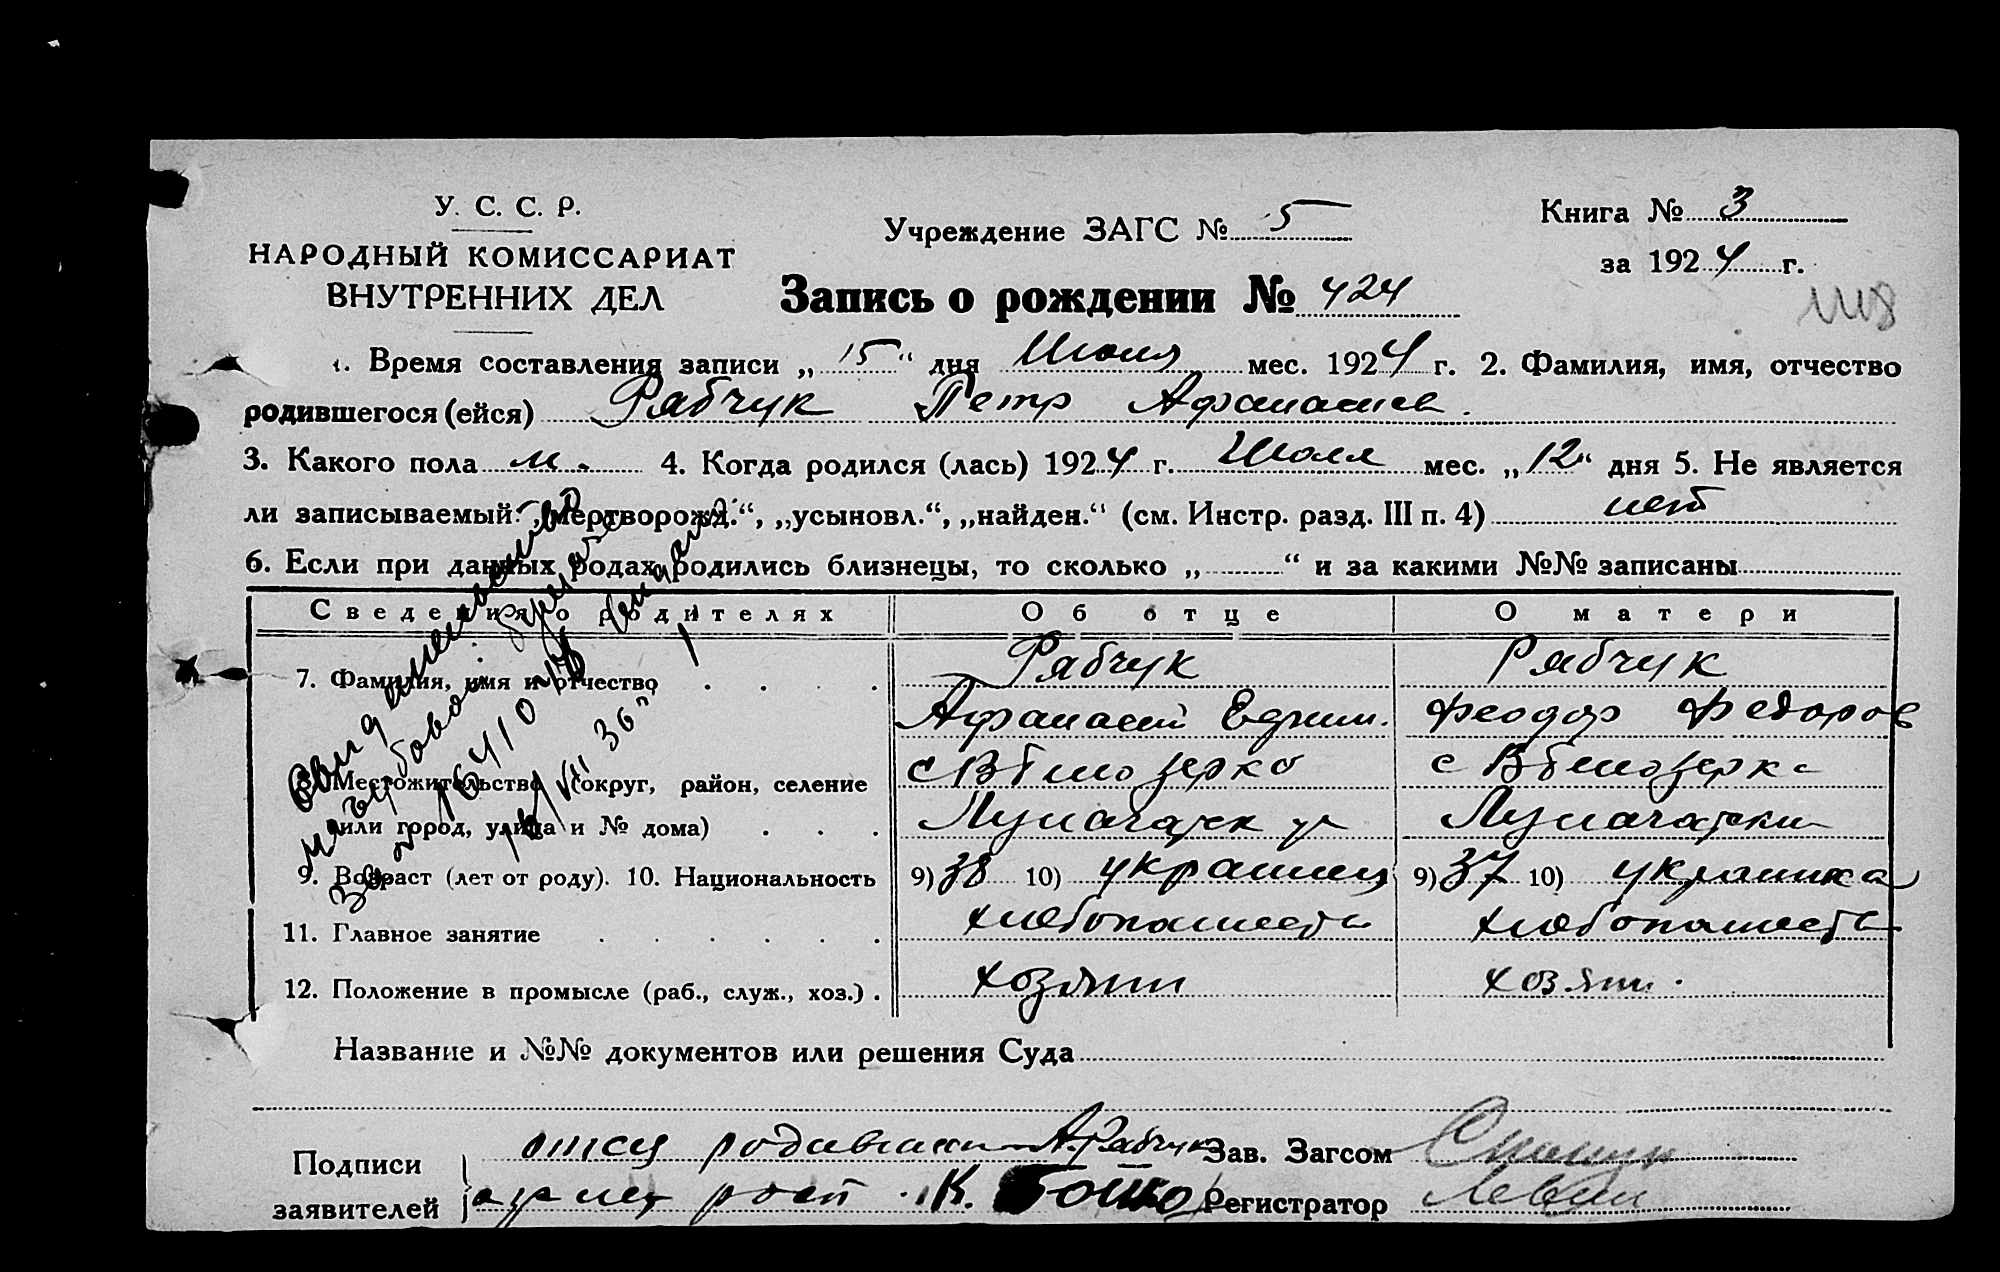 У. С. С. Р.
НАРОДНЫЙ КОМИССАРИАТ
ВНУТРЕННИХ ДЕЛ
Учреждение ЗАГС № 5
Книга № 3
за 1924 г.
Запись о рождении № 424
1. Время составления записи „15“ дня Июля мес. 1924 г. 2. Фамилия, имя, отчество
родившегося (ейся) Рябчук Петр Афанасиев.
3. Какого пола м. 4. Когда родился (лась) 1924 г. Июля мес. „12“ дня 5. Не является
ли записываемый: „мертворожд.“, „усыновл.“, „найден.“ (см. Инстр. разд. III п. 4) нет
6. Если при данных родах родились близнецы, то сколько „ “ и за какими №№ записаны
Сведения о родителях Об отце О матери
7. Фамилия, имя и отчество Рябчук Рябчук
Афанасий Ефим. Федоров
8. Местожительство (округ, район, селение с Белозерка с Белозерка
или город, улица и № дома)
9. Возраст (лет от роду). 10. Национальность 9) 38 10) украинец 9) 37 10) украинка
11. Главное занятие хлебопашество хлебопашество
12. Положение в промысле (раб., служ., хоз.) хозяин хозяин.
Название и №№ документов или решения Суда
Подписи отец А. Рябчук Зав. Загсом
заявителей К. Регистратор Левин